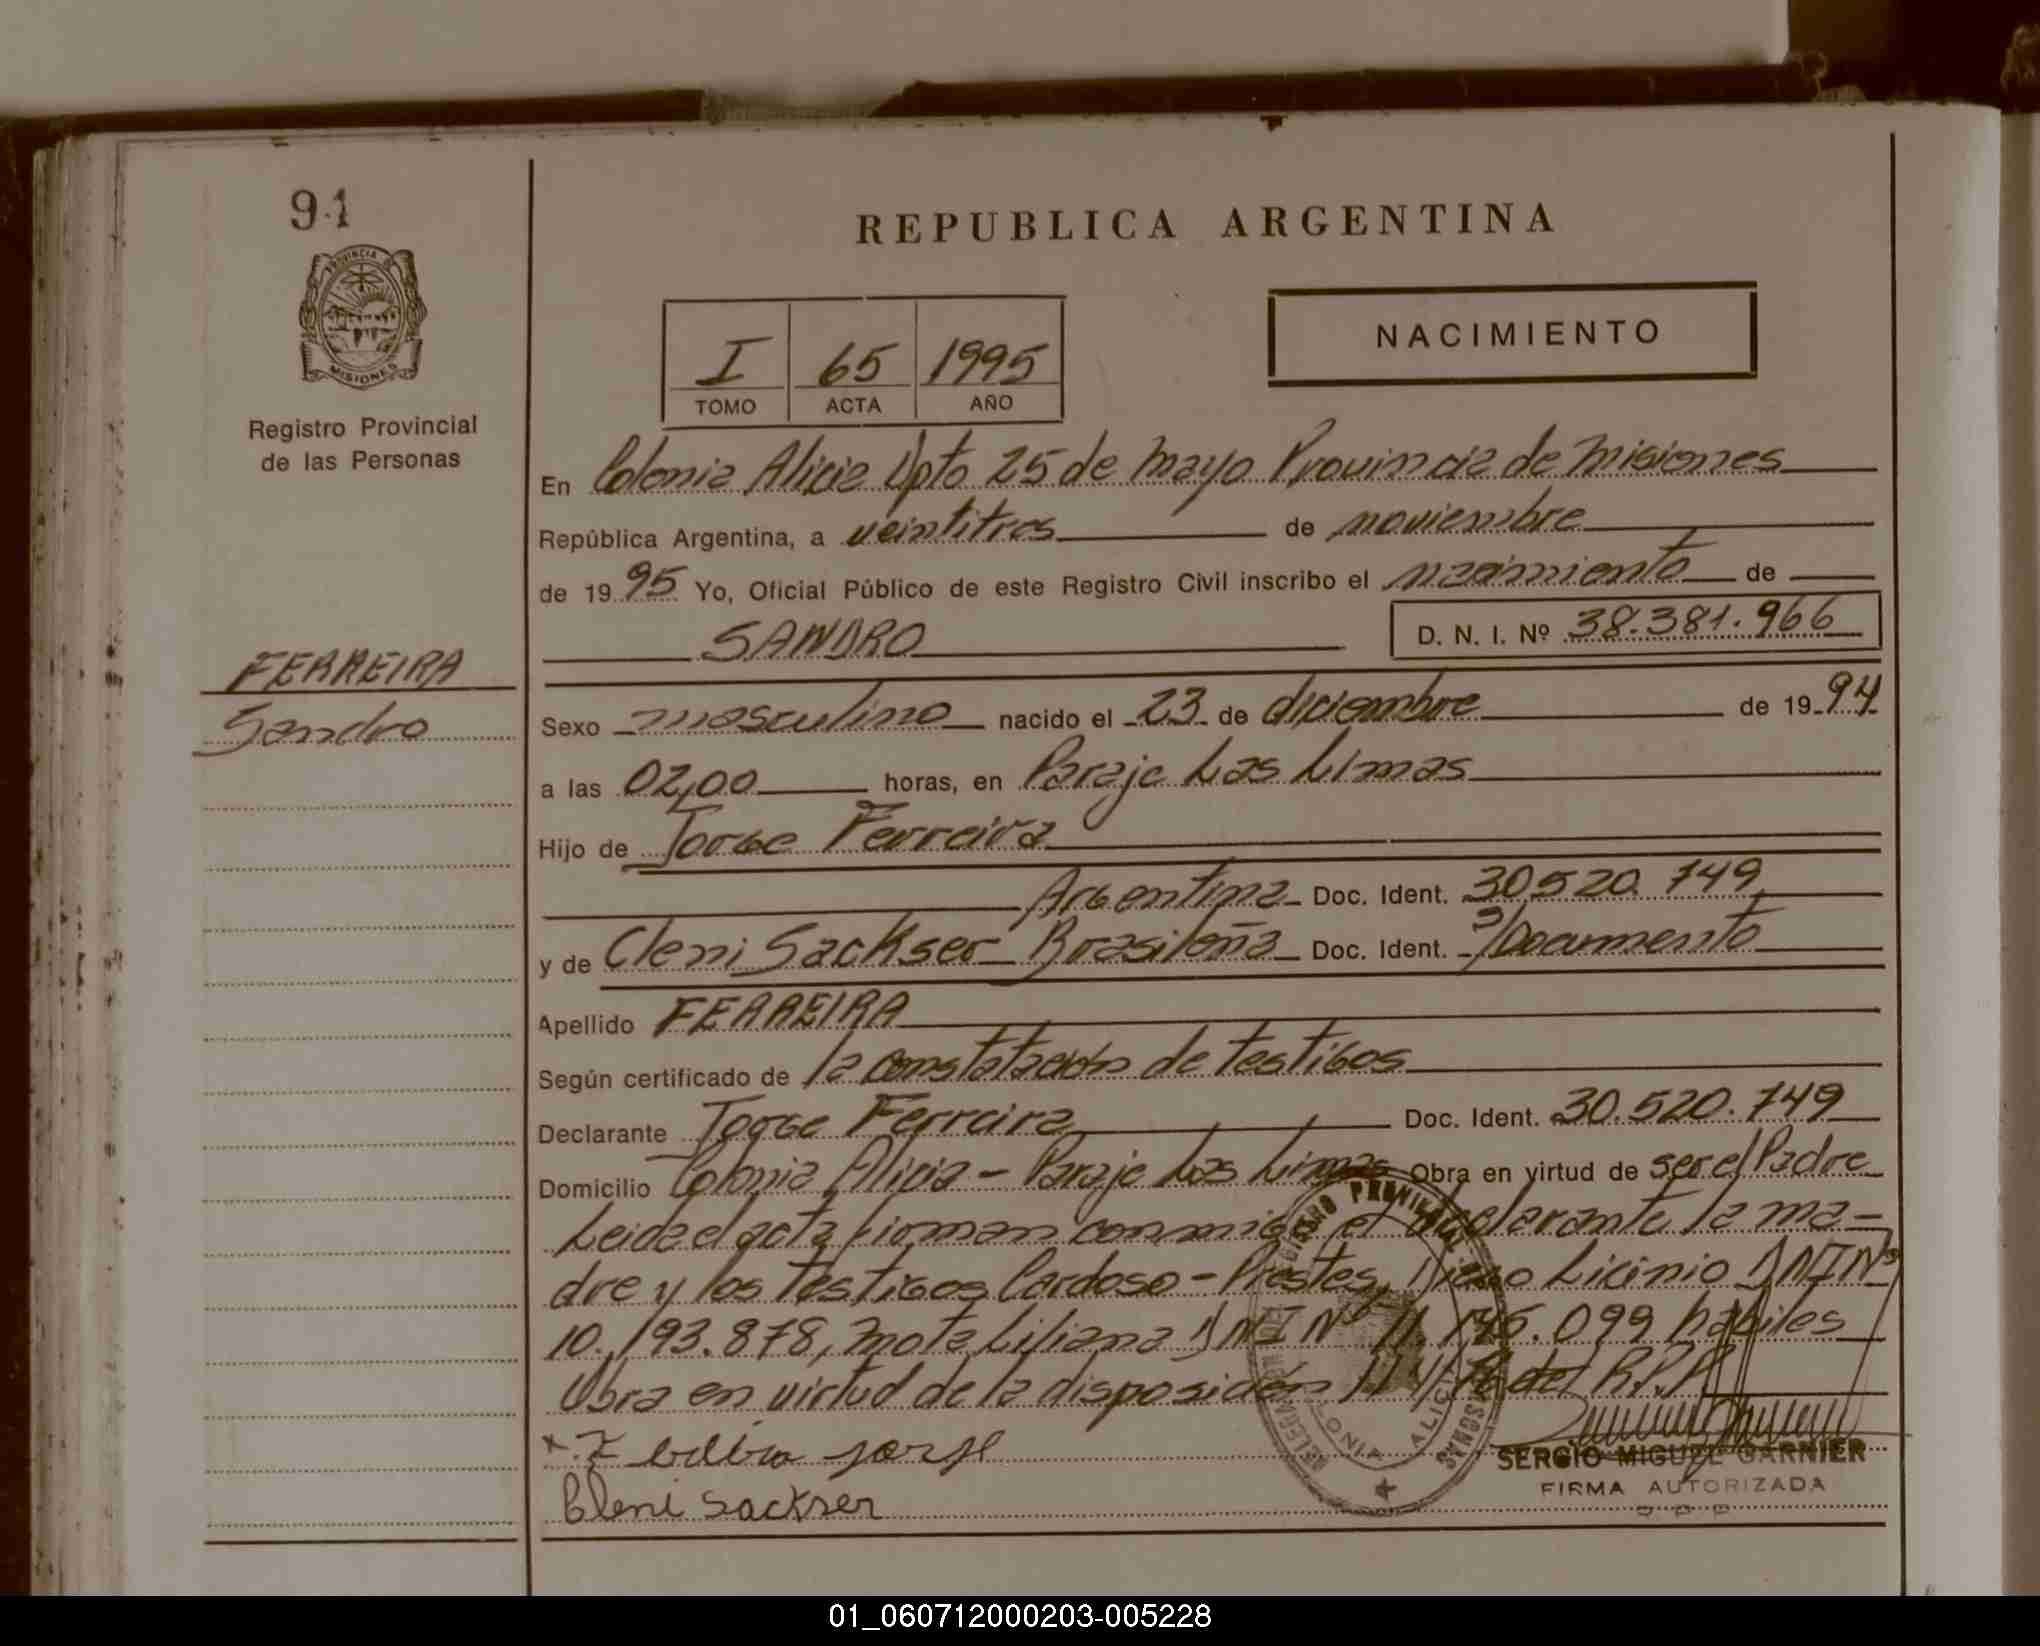 91
PROVINCIA DE
MISIONES
Registro Provincial
de las Personas
FERREIRA
Sandro
REPUBLICA ARGENTINA
I 65 1995
TOMO ACTA AÑO
NACIMIENTO
En Colonia Alicia Dpto 25 de mayo Provincia de Misiones
República Argentina, a veintitres de noviembre
de 1995 Yo, Oficial Público de este Registro Civil inscribo el nacimiento de
SANDRO D. N. I. Nº 38.381.966
Sexo masculino nacido el 23 de diciembre de 1994
a las 02,00 horas, en Paraje Las Limas
Hijo de Jorge Ferreira
Argentina Doc. Ident. 30.520.749
y de Cleni Sackser Brasileña Doc. Ident. s/Documento
Apellido FERREIRA
Según certificado de la constatación de testigos
Declarante Jorge Ferreira Doc. Ident. 30.520.749
Domicilio Colonia Alicia - Paraje Las Limas Obra en virtud de ser el Padre
Leida el acta firman conmigo el declarante la ma-
dre y los testigos Cardoso - Prestes, Licinio DNI Nº
10.193.878, Mota Liliana DNI Nº 11.146.099 habiles
Obra en virtud de la disposición del R.P.P.
x Ferreira Jorge
Cleni Sackser
COLONIA ALICIA
SERGIO MIGUEL GARNIER
FIRMA AUTORIZADA
01_060712000203-005228